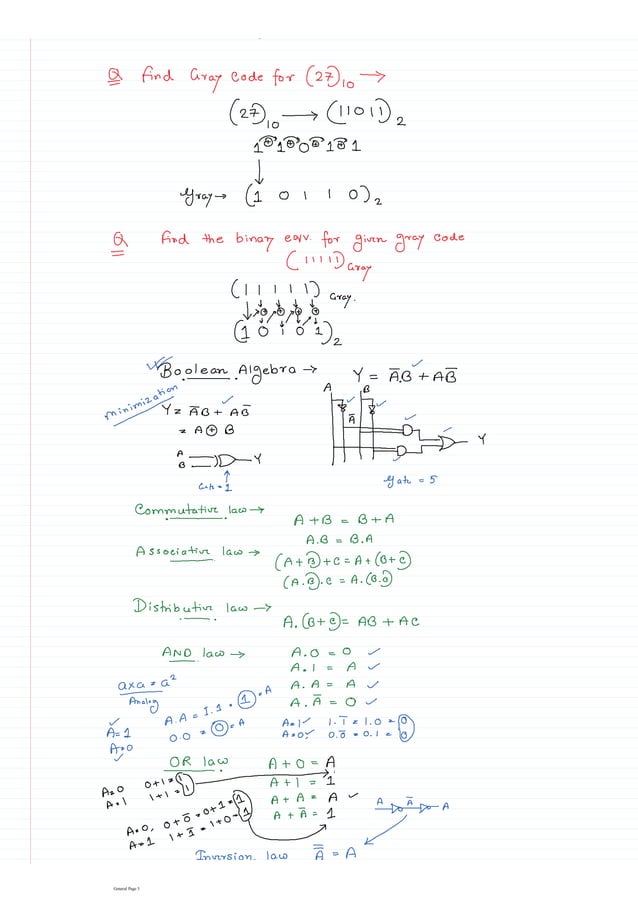 Q Find Gray Code for (27)10 →
(27)10 → (11011)2
1 ⊕ 1 ⊕ 0 ⊕ 1 ⊕ 1
Gray → (1 0 1 1 0)2
Q Find the binary eqv. for given gray code
(11111)Gray
(1 1 1 1 1) Gray.
(1 0 1 0 1)2
Boolean Algebra →
Y = A̅.B + AB̅
minimization
Y = A̅B + AB̅
= A ⊕ B
A
B
Y
Gate = 1
A B
A̅
Y
Gate = 5
Commutative law →
A + B = B + A
A.B = B.A
Associative law →
(A + B) + C = A + (B + C)
(A.B).C = A.(B.C)
Distributive law →
A.(B + C) = AB + AC
AND law →
A.0 = 0
A.1 = A
A.A = A
A.A̅ = 0
a×a = a²
Analog
A=1
A=0
A.A = 1.1 = 1 = A
0.0 = 0 = A
A=1 1.1̅ = 1.0 = 0
A=0 0.0̅ = 0.1 = 0
OR law
A + 0 = A
A + 1 = 1
A + A = A
A + A̅ = 1
A=0 0+1=1
A=1 1+1=1
A=0, 0+0̅=0+1=1
A=1 1+1̅=1+0=1
A A̅ A
Inversion law A̿ = A
General Page 3